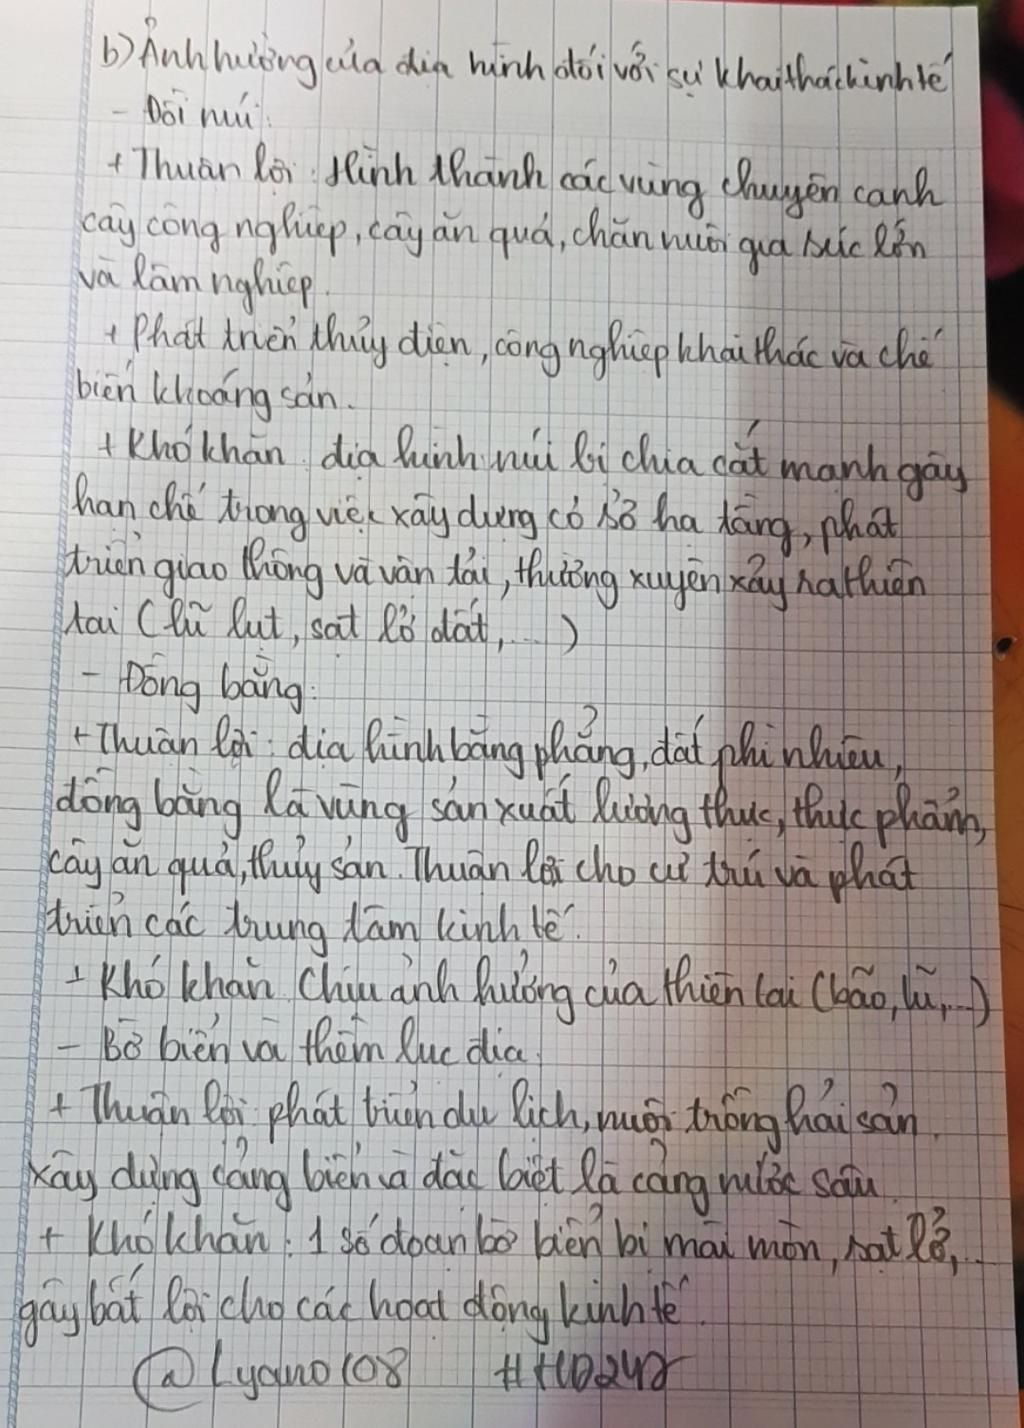 b) Ảnh hưởng của địa hình đối với sự khai thác kinh tế
- Đồi núi:
+ Thuận lợi: Hình thành các vùng chuyên canh
cây công nghiệp, cây ăn quả, chăn nuôi gia súc lớn
và lâm nghiệp.
+ Phát triển thủy điện, công nghiệp khai thác và chế
biến khoáng sản.
+ Khó khăn: địa hình núi bị chia cắt mạnh gây
hạn chế trong việc xây dựng cơ sở hạ tầng, phát
triển giao thông và vận tải, thường xuyên xảy ra thiên
tai (lũ lụt, sạt lở đất,...)
- Đồng bằng:
+ Thuận lợi: địa hình bằng phẳng, đất phì nhiêu,
đồng bằng là vùng sản xuất lương thực, thực phẩm,
cây ăn quả, thủy sản. Thuận lợi cho cư trú và phát
triển các trung tâm kinh tế.
+ Khó khăn: Chịu ảnh hưởng của thiên tai (bão, lũ,...)
- Bờ biển và thềm lục địa:
+ Thuận lợi: phát triển du lịch, nuôi trồng hải sản.
xây dựng cảng biển và đặc biệt là cảng nước sâu.
+ Khó khăn: 1 số đoạn bờ biển bị mài mòn, sạt lở,..
gây bất lợi cho các hoạt động kinh tế.